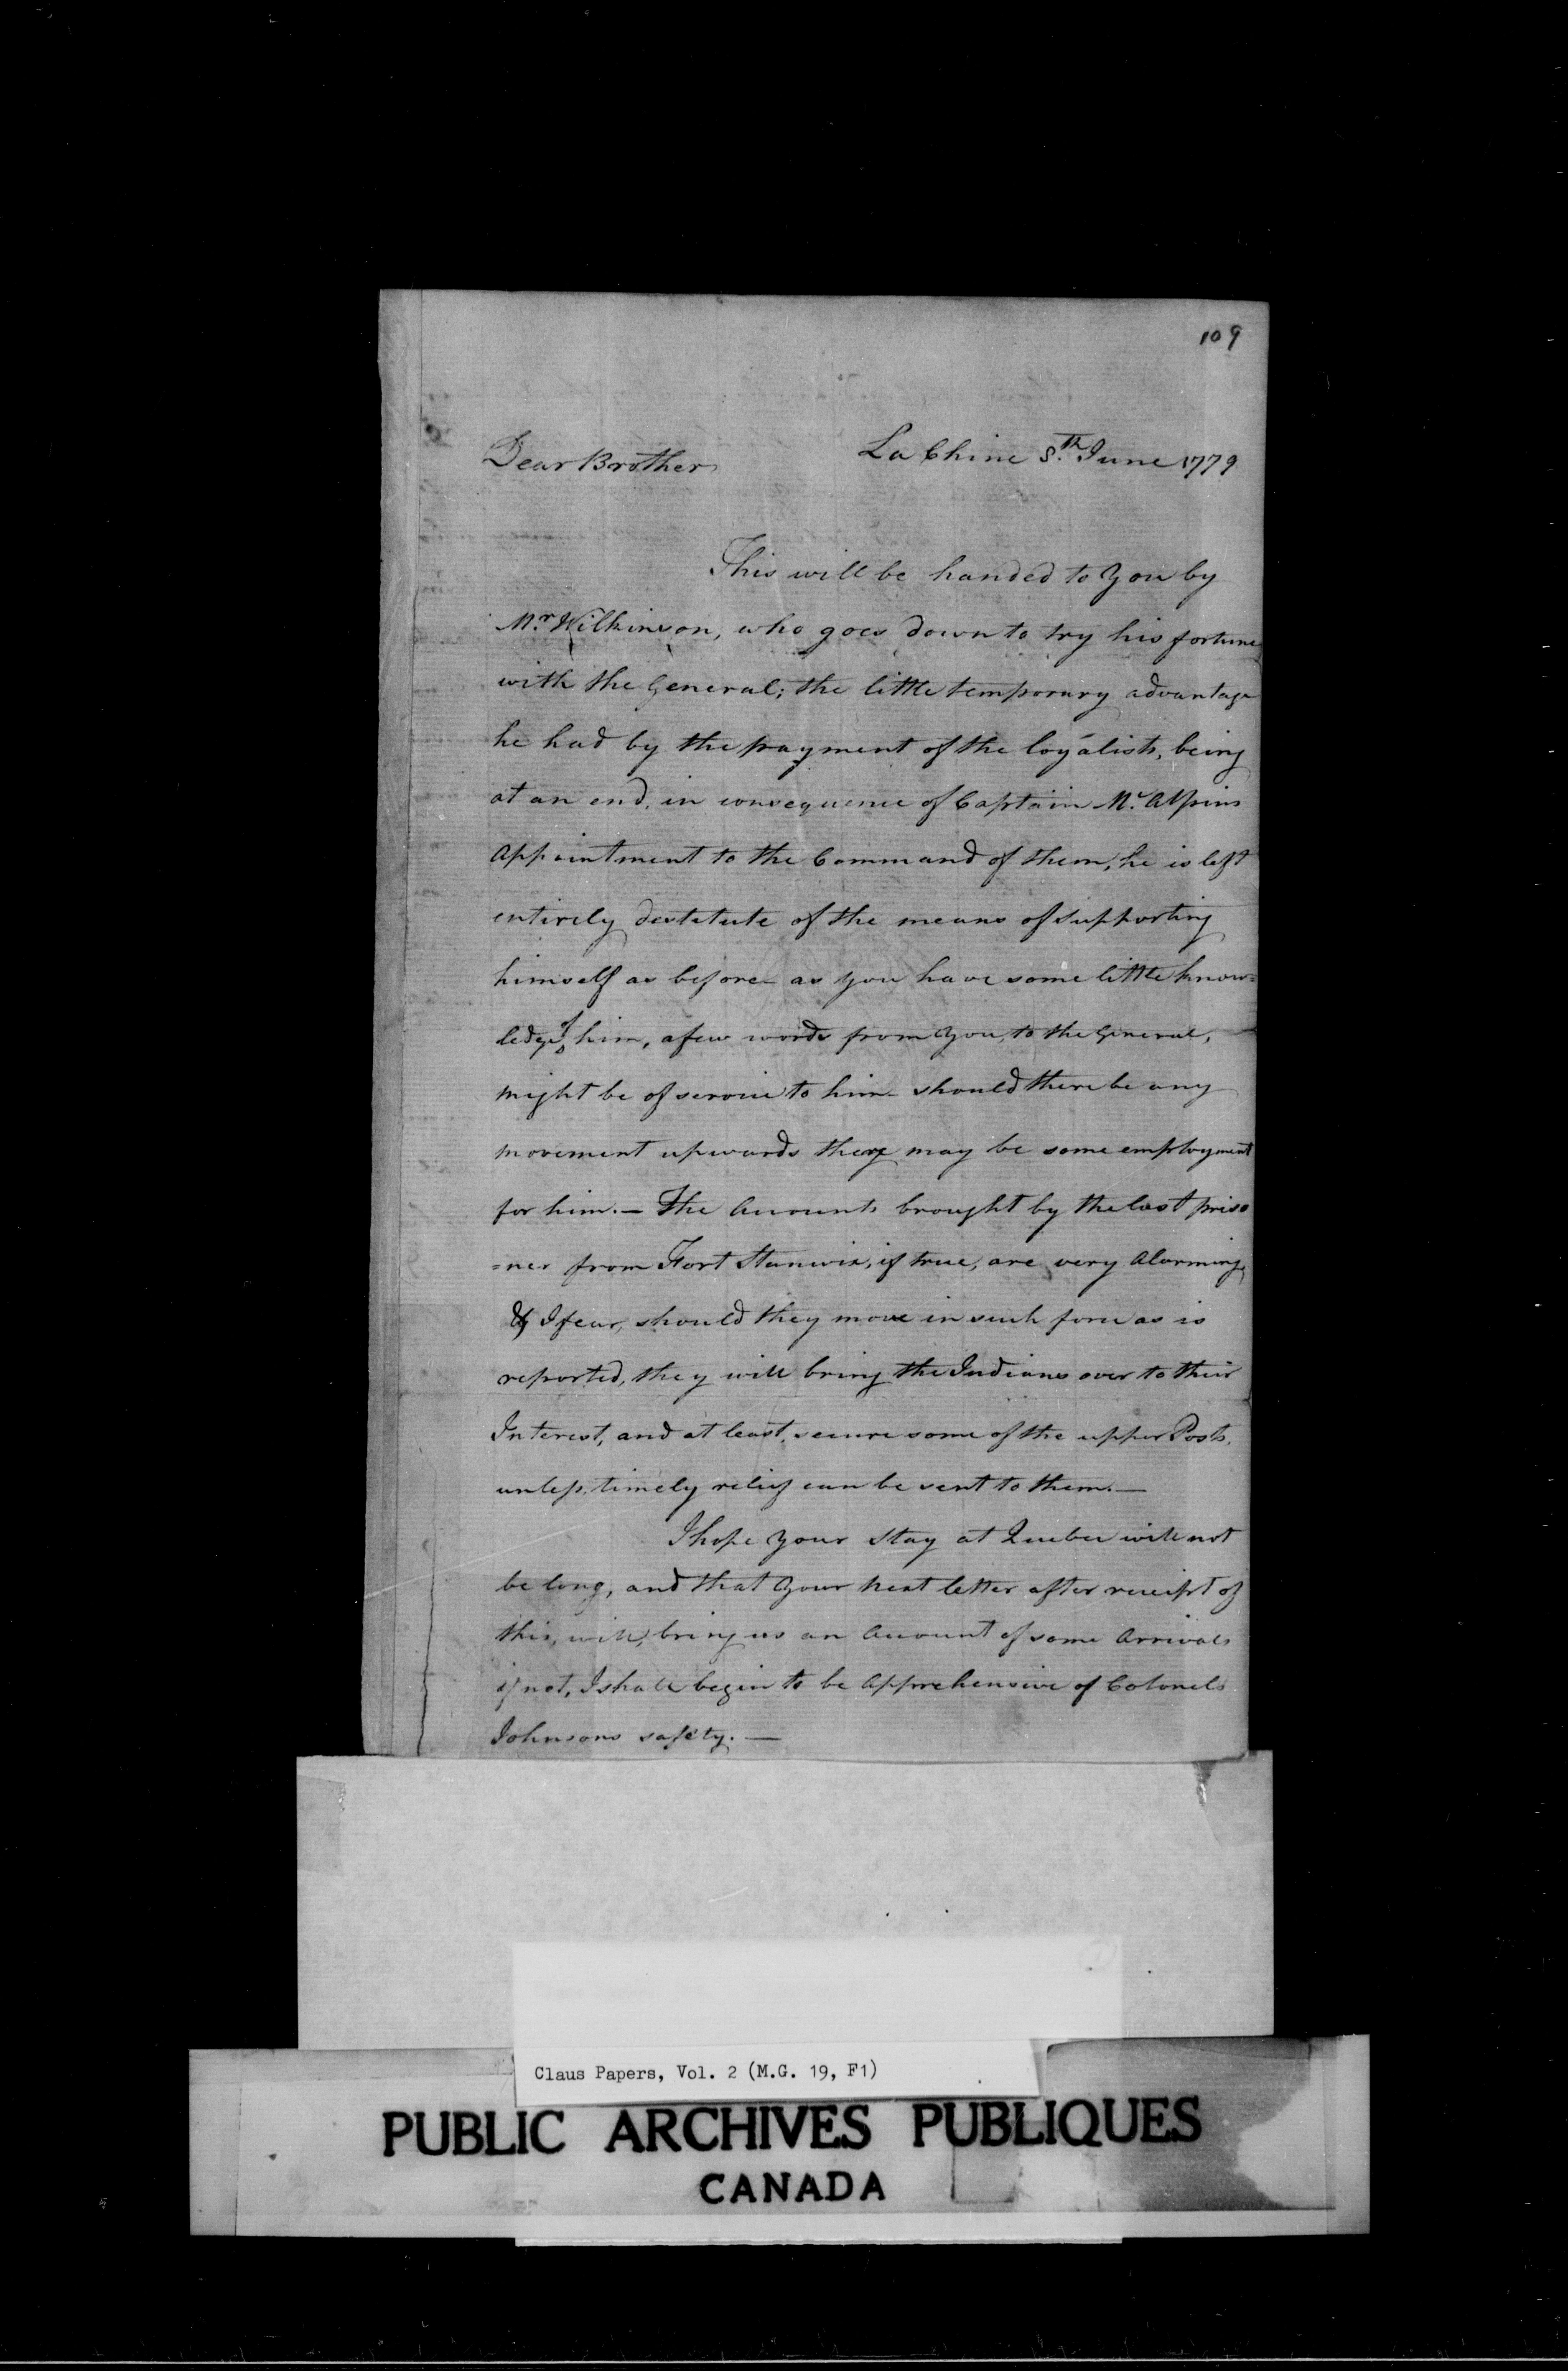 109
La Chine 8.th June 1779
Dear Brother
This will be handed to You by
Mr. Wilkinson, who goes down to try his fortune
with the General; the little temporary advantage
he had by the payment of the loyalists, being
at an end, in consequence of Captain Mc. Alpins
Appointment to the Command of them, he is left
entirely destitute of the means of supporting
himself as before - as you have some little know=
ledge of him, a few words from You, to the General,
might be of service to him - should there be any
movement upwards there may be some employment
for him. — The Accounts brought by the last priso
=ner from Fort Stanwix, if true, are very Alarming,
& I fear, should they move in such force as is
reported, they will bring the Indians over to their
Interest, and at least, secure some of the upper Posts,
unless, timely relief can be sent to them. —
I hope Your Stay at Quebec will not
be long, and that Your next letter after receipt of
this, will, bring us an Account of some Arrivals
if not, I shall begin to be Apprehensive of Colonels
Johnsons safety. —
Claus Papers, Vol. 2 (M.G. 19, F1)
PUBLIC ARCHIVES PUBLIQUES
CANADA